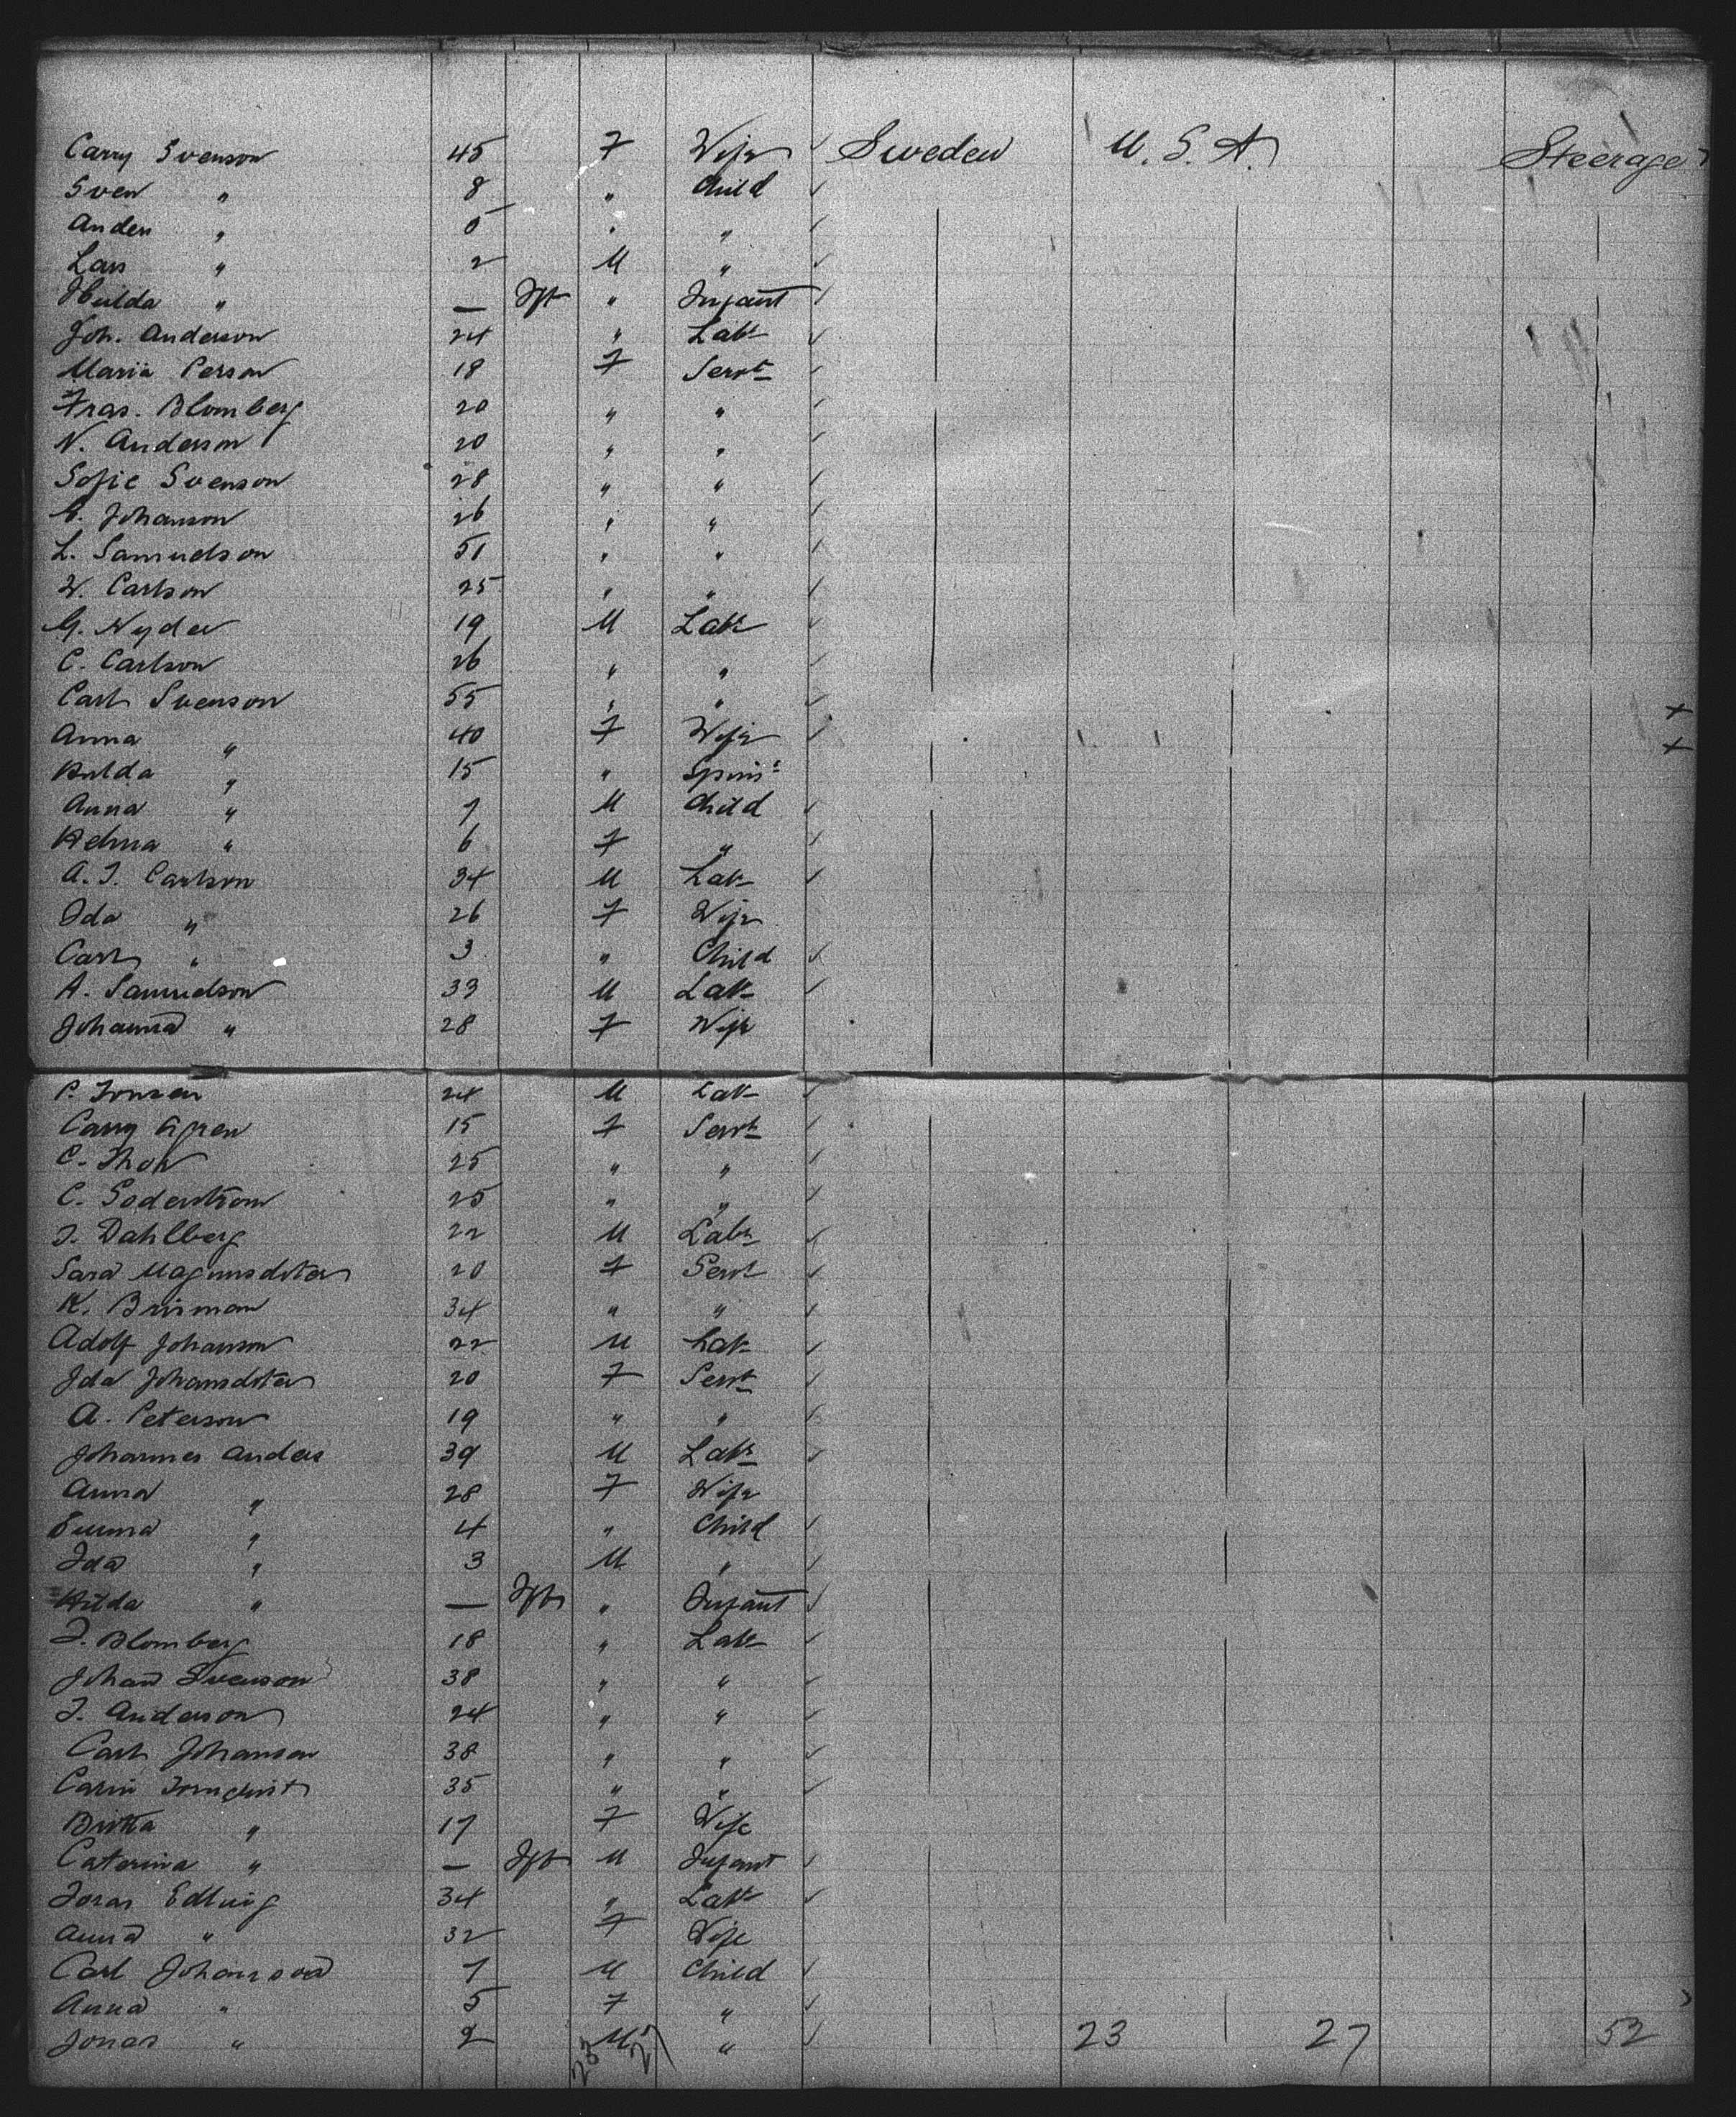 Carry Svenson 45 F Wife Sweden U.S.A. Steerage
Sven " 8 " Child
Anders " 5 " "
Lars " 2 M "
Hulda " — Inft " Infant
Joh. Anderson 24 " Labr
Maria Person 18 F Servt
Fras. Blomberg 20 " "
N. Anderson 20 " "
Sofie Svenson 28 " "
E. Johanson 26 " "
L. Samuelson 51 " "
W. Carlson 25 " "
G. Nyder 19 M Labr
C. Carlson 26 " "
Carl Svenson 55 " " +
Anna " 40 F Wife +
Hulda " 15 " Spinsr
Anna " 7 M Child
Helma " 6 F "
A. J. Carlson 34 M Labr
Ida " 26 F Wife
Carl " 3 " Child
A. Samuelson 33 M Labr
Johanna " 28 F Wife
P. 24 M Labr
Carry 15 F Servt
C. Thor 25 " "
C. Soderstrom 25 " "
J. Dahlberg 22 M Labr
Sara Magnusdoter 20 F Servt
K. Brisman 34 " "
Adolf Johanson 22 M Labr
Ida Johansdoter 20 F Servt
A. Peterson 19 " "
Johannes Anders 39 M Labr
Anna " 28 F Wife
Emma " 4 " Child
Ida " 3 M "
Hilda " — Inft " Infant
J. Blomberg 18 " Labr
Johan Svenson 38 " "
J. Anderson 24 " "
Carl Johanson 38 " "
Carin Tornquist 35 " "
Britta " 17 F Wife
Caterina " — Inft M Infant
Jonas 34 " Labr
Anna " 32 F Wife
Carl 7 M Child
Anna " 5 F "
Jonas " 2 M " 23 27 52
23 27